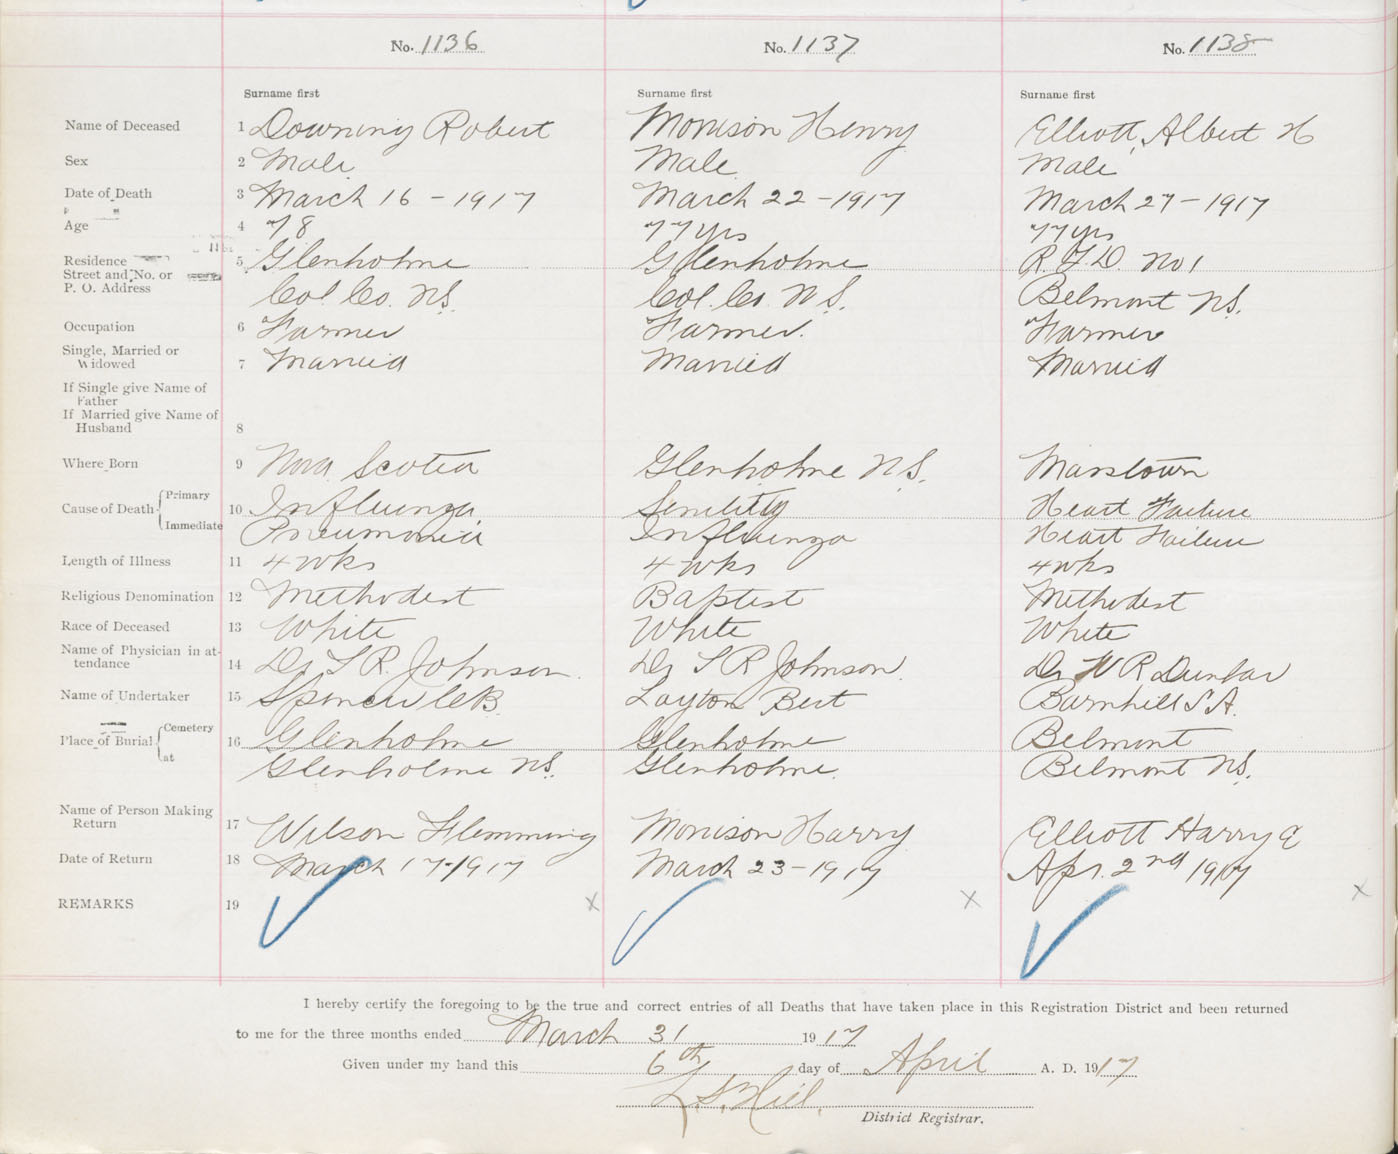 No. 1136 No. 1137 No. 1138
Surname first Surname first Surname first
Name of Deceased 1 Downing Robert Morrison Henry Elliott, Albert H
Sex 2 Male Male Male
Date of Death 3 March 16 - 1917 March 22 - 1917 March 27 - 1917
Age 4 78 77 yrs 77 yrs
Residence 5 Glenholme Glenholme R.F.D. No 1
Street and No. or
P. O. Address Col. Co. N.S. Col. Co. N.S. Belmont N.S.
Occupation 6 Farmer Farmer. Farmer
Single, Married or
Widowed 7 Married Married Married
If Single give Name of
Father
If Married give Name of
Husband 8
Where Born 9 Nova Scotia Glenholme N.S.
Cause of Death Primary 10 Influenza Senility Heart Failure
Immediate Pneumonia Influenza Heart Failure
Length of Illness 11 4 wks 4 wks 4 wks
Religious Denomination 12 Methodist Baptist Methodist
Race of Deceased 13 White White White
Name of Physician in at-
tendance 14 Dr T.R. Johnson. Dr T R Johnson. Dr W R Dunbar
Name of Undertaker 15 Spencer Layton Bert Barnhill S.A.
Place of Burial Cemetery 16 Glenholme Glenholme Belmont
at Glenholme N.S. Glenholme. Belmont N.S.
Name of Person Making
Return 17 Wilson Flemming Morrison Harry Elliott Harry E
Date of Return 18 March 17-1917 March 23-1917 Apr. 2nd 1917
REMARKS 19 x x x
I hereby certify the foregoing to be the true and correct entries of all Deaths that have taken place in this Registration District and been returned
to me for the three months ended March 31 1917
Given under my hand this 6th day of April A. D. 1917
L.S. Hill.
District Registrar.